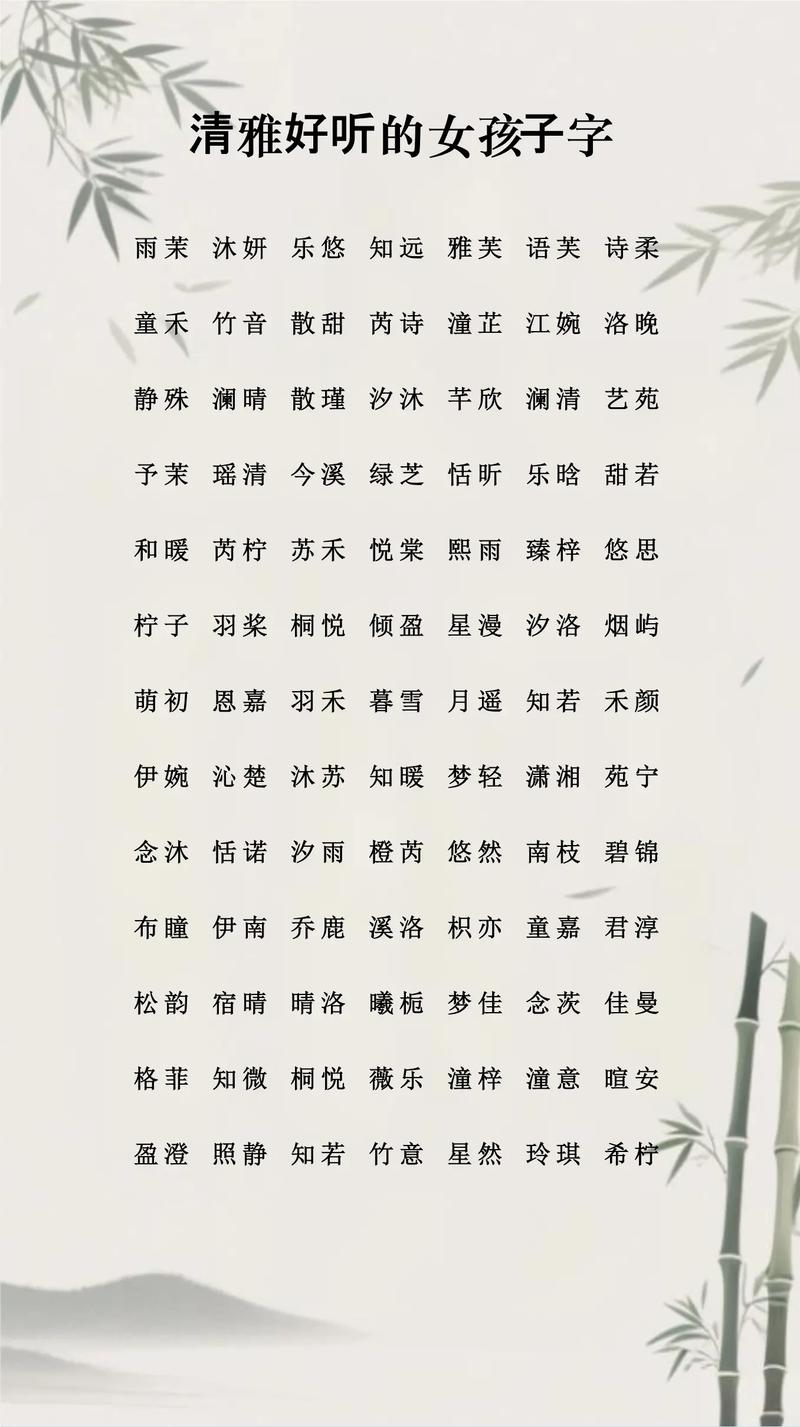 清雅好听的女孩子字
雨茉 沐妍 乐悠 知远 雅芙 语芙 诗柔
童禾 竹音 散甜 芮诗 潼芷 江婉 洛晚
静殊 澜晴 散瑾 汐沐 芊欣 澜清 艺苑
予茉 瑶清 今溪 绿芝 恬昕 乐晗 甜若
和暖 芮柠 苏禾 悦棠 熙雨 臻梓 悠思
柠子 羽桨 桐悦 倾盈 星漫 汐洛 烟屿
萌初 恩嘉 羽禾 暮雪 月遥 知若 禾颜
伊婉 沁楚 沐苏 知暖 梦轻 潇湘 苑宁
念沐 恬诺 汐雨 橙芮 悠然 南枝 碧锦
布瞳 伊南 乔鹿 溪洛 枳亦 童嘉 君淳
松韵 宿晴 晴洛 曦栀 梦佳 念茨 佳曼
格菲 知微 桐悦 薇乐 潼梓 潼意 暄安
盈澄 照静 知若 竹意 星然 玲琪 希柠